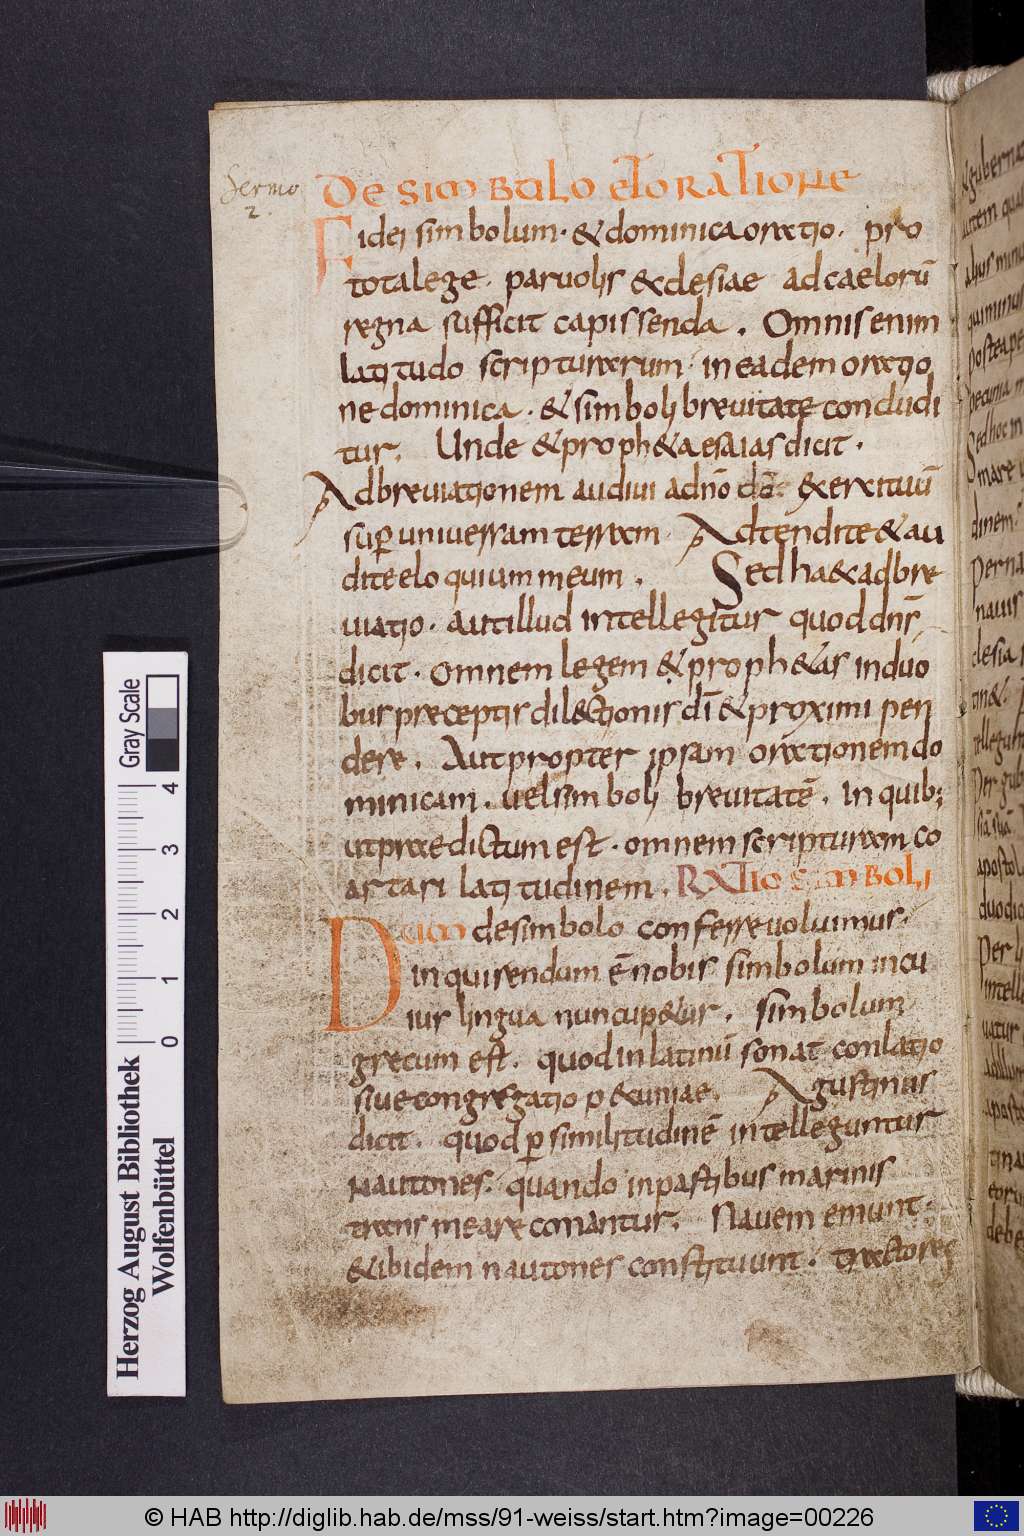 Sermo
2.
DE SIMBULO ET ORATIONE
Fidei simbolum · & dominica oratio · pro
tota lege · paruolis &clesiae ad caelorū
regna sufficit capissenda . Omnis enim
latitudo scripturarum · in eadem oratio
ne dominica · & simboli breuitate concludi
tur . Unde & proph&a esaias dicit ·
Adbreuiationem audiui ad dño dō &exercituū
super uniuersam terram · Adtendite & au
dite eloquium meum . Sed ha& adbre
uiatio · aut illud intellegitur quod dns
dicit · omnem legem & proph&as in duo
bus preceptis dilectionis dī & proximi pen
dere . Aut propter ipsam orationem do
minicam . uel simboli breuitatē . in quib;
ut praedictum est · omnem scripturam co
artari latitudinem . RATIO SIMBOLI
Dum de simbolo conferre uoluimus ·
inquirendum ē nobis simbolum in cu
ius lingua nuncup&ur . simbolum
grecum est . quod in latinū sonat conlatio
siue congregatio p&uniae . Agustinus
dicit . quod p similitudinē intelleguntur
nautones . quando in partibus marinis
trans meare conantur . Nauem emunt .
& ibidem nautones constituunt . tractores
Gray Scale
0 1 2 3 4
Herzog August Bibliothek
Wolfenbüttel
© HAB http://diglib.hab.de/mss/91-weiss/start.htm?image=00226